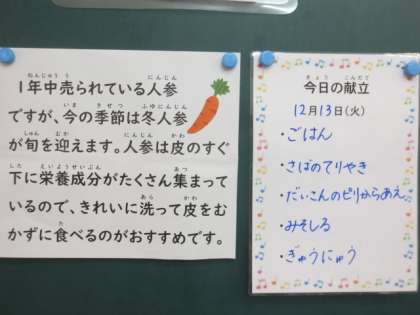 1年中売られている人参
ですが、今の季節は冬人参
が旬を迎えます。人参は皮のすぐ
下に栄養成分がたくさん集まって
いるので、きれいに洗って皮をむ
かずに食べるのがおすすめです。
今日の献立
12月13日(火)
・ごはん
・さばのてりやき
・だいこんのピリからあえ
・みそしる
・ぎゅうにゅう